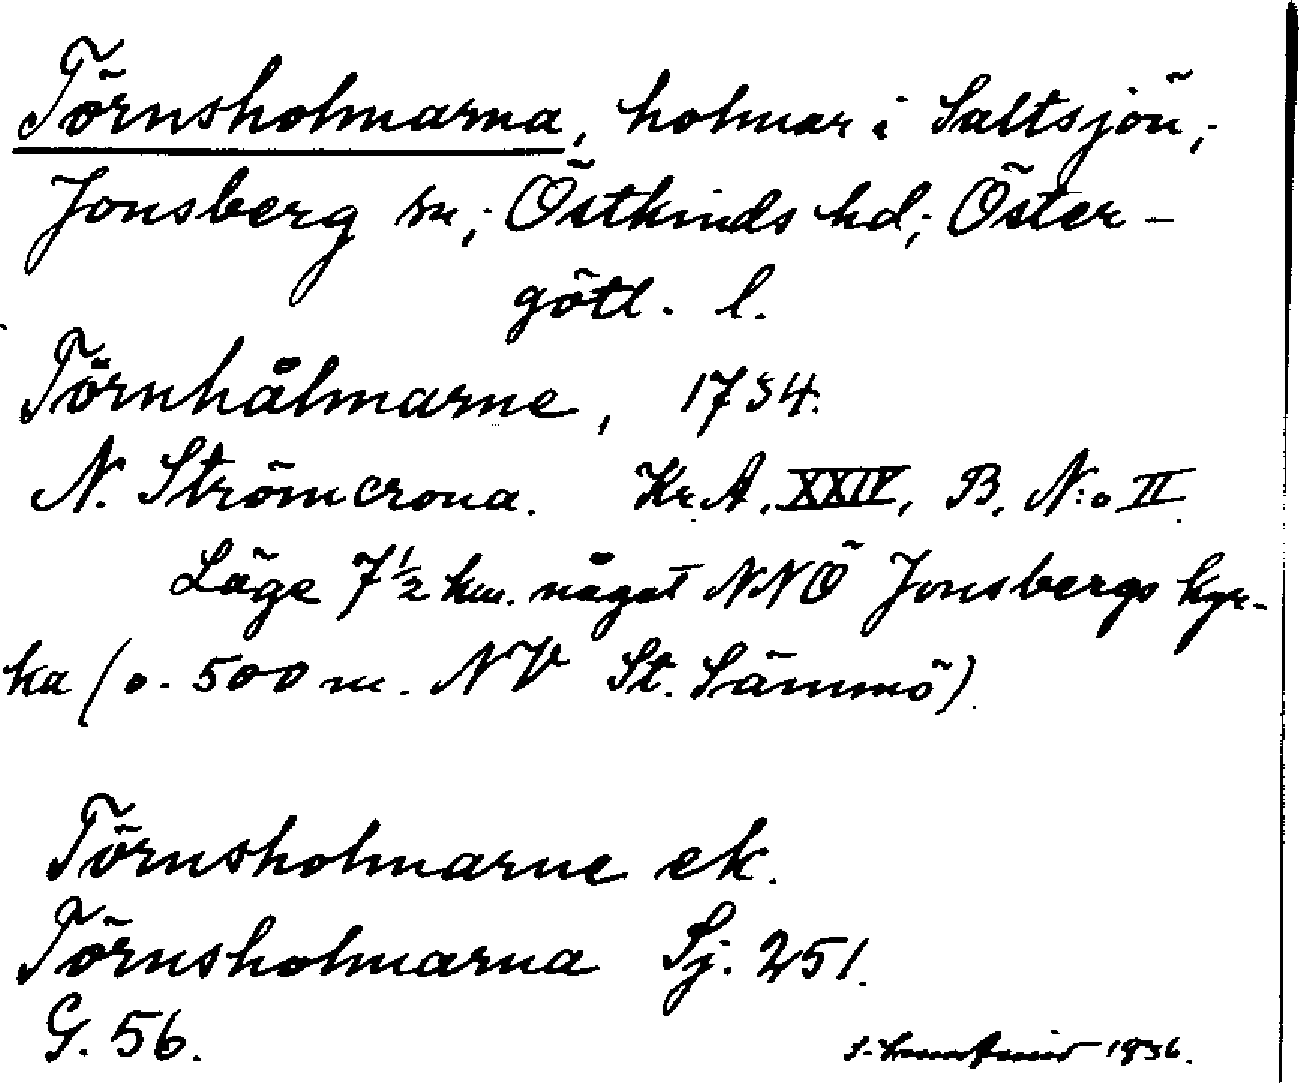 Törnsholmarna, holmar i Saltsjön,
Jonsberg sn, Östkinds hd, Öster-
götl. l.
Törnhålmarne, 1734.
N. Strömcrona. Kr. A. XXIV, B. N:o II
Läge 7 1/2 km. något NNÖ Jonsbergs kyr-
ka (o. 500 m. NV St. Sämmö).
Törnsholmarne ek.
Törnsholmarna Sj. 251.
G. 56.
1936.